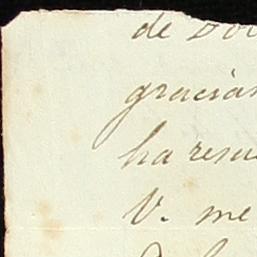 de
gracias
ha resu
V. me